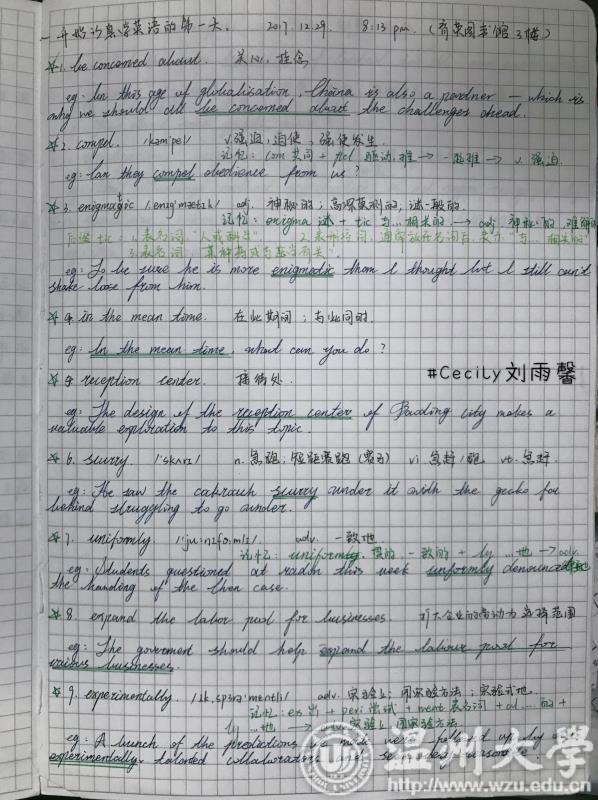 一 开始认真学英语的第一天. 2017.12.29. 8:13 pm. (育英图书馆3楼)
☆1. be concerned about. 关心, 挂念
eg: In this age of globalisation, China is also a partner — which is
why we should all be concerned about the challenges ahead.
☆2. compel. /kəm'pel/ v. 强迫, 迫使; 强使发生.
记忆: com 共同 + pel 驱动, 推 → 一起推 → v. 强迫.
eg: Can they compel obedience from us?
☆3. enigmatic /enig'mætik/ adj. 神秘的; 高深莫测的, 谜一般的.
记忆: enigma 谜 + tic 与…相关的 → adj. 神秘的, 难解的
后缀 tic 1. 表名词
eg: To be sure he is more enigmatic than I thought but I still can't
shake loose from him.
☆4 in the mean time. 在此期间; 与此同时.
eg: In the mean time, what can you do?
#Cecily刘雨馨
☆5 reception center. 接待处.
eg: The design of the reception center of Baoding city makes a
valuable exploration to this topic.
☆6. scurry. /'skʌrɪ/ n. 急跑; 短距离跑 vi. 急赶/跑 vt. 急赶.
eg: He saw the cockroach scurry under it with the gecko far
behind struggling to go under.
☆7. uniformly. /'ju:nifɔ:mlɪ/ adv. 一致地
记忆: uniform 一致的 + ly …地 → adv.
eg: Students questioned at random this week uniformly denounced
the handing of the Chen case.
☆8. expand the labor pool for businesses. 扩大企业的劳动力选择范围
eg: The goverment should help expand the labour pool for
various businesses.
☆9. experimentally. adv. 实验上; 用实验方法; 实验式地.
记忆: ex 出 + peri 尝试 + ment 表名词 + al …的 +
ly …地 → adv. 实验上, 用实验方法
eg: A bunch of the predictions were followed up by
experimentally talented collaborators
温州大学
http://www.wzu.edu.cn